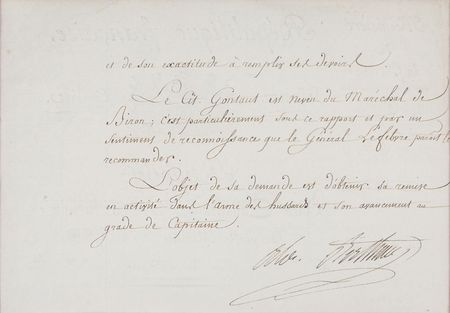 et de son exactitude à remplir ses devoirs.
Le Cit. Gontaut est neveu du Maréchal de
Biron; c'est particulièrement sous ce rapport et par un
sentiment de reconnoissance que le Général Lefebvre paroit le
recommander.
L'objet de sa demande est d'obtenir sa remise
en activité dans l'arme des hussards et son avancement au
grade de Capitaine.
Alex. Berthier